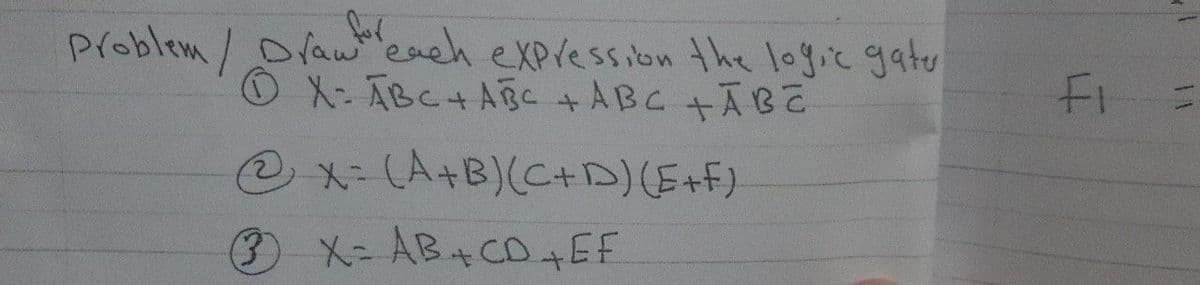 Problem / Draw for each expression the logic gate
① X= ĀBC + AB̄C + ABC + ĀBC̄
F1 =
② X= (A+B)(C+D)(E+F)
③ X= AB+CD+EF